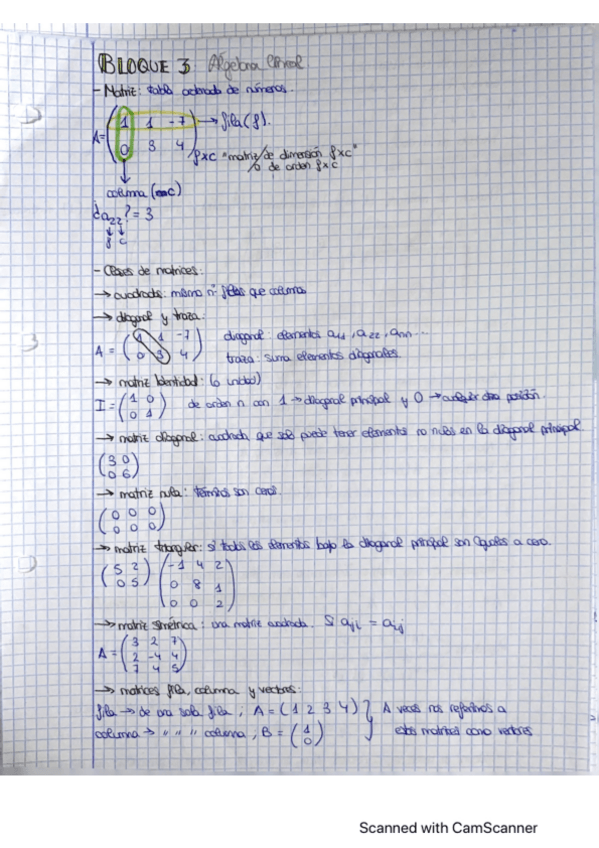 BLOQUE 3 Algebra lineal.
- Matriz: tabla ordenada de números.
A= ( 1 1 -7 ) → fila (f).
( 0 3 4 ) fxc "matriz de dimensión fxc"
o de orden fxc
columna (c)
¿a22? = 3
f c
- Clases de matrices:
→ cuadrada: mismo nº filas que columnas
→ diagonal y traza:
A = ( 1 1 -7 ) diagonal: elementos a11, a22, ann...
( 0 3 4 ) traza: suma elementos diagonales.
→ matriz Identidad: (o unidad)
I = ( 1 0 ) de orden n con 1 → diagonal principal y 0 → cualquier otra posición.
( 0 1 )
→ matriz diagonal: cuadrada que solo puede tener elementos no nulos en la diagonal principal.
( 3 0 )
( 0 6 )
→ matriz nula: términos son ceros.
( 0 0 0 )
( 0 0 0 )
→ matriz triangular: si todos los elementos bajo la diagonal principal son iguales a cero.
( 5 2 ) ( -1 4 2 )
( 0 5 ) ( 0 8 1 )
( 0 0 2 )
→ matriz simétrica: una matriz cuadrada. Si aji = aij
A = ( 3 2 7 )
( 2 -4 4 )
( 7 4 5 )
→ matrices fila, columna y vectores:
fila → de una sola fila ; A = ( 1 2 3 4 ) } A veces nos referimos a
columna → " " " columna ; B = ( 1 ) estas matrices como vectores
( 0 )
Scanned with CamScanner